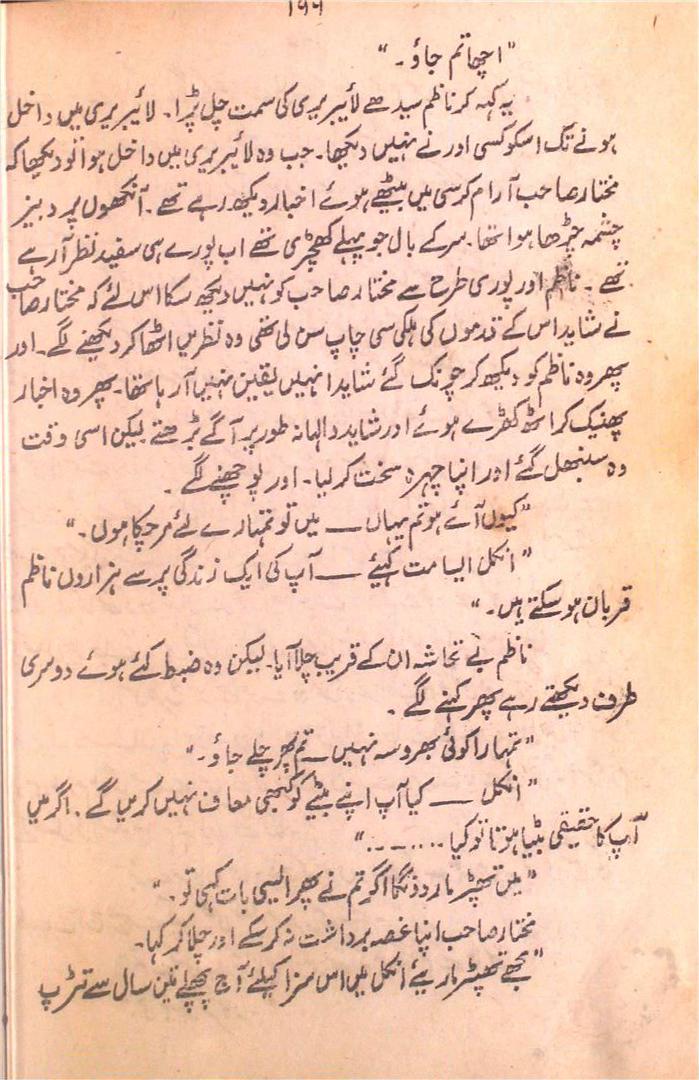 ۱۹۹
"اچھا تم جاؤ۔"
یہ کہہ کر ناظم سیدھے لائیبریری کی سمت چل پڑا۔ لائیبریری میں داخل
ہونے تک اسکو کسی اور نے نہیں دیکھا۔ جب وہ لائیبریری میں داخل ہوا تو دیکھا کہ
مختار صاحب آرام کرسی میں بیٹھے ہوئے اخبار دیکھ رہے تھے۔ آنکھوں پر دبیز
چشمہ چڑھا ہوا تھا۔ سر کے بال جو پہلے کھچڑی تھے اب پورے ہی سفید نظر آرہے
تھے۔ ناظم اور پوری طرح سے مختار صاحب کو نہیں دیکھ سکا اس لئے کہ مختار صاحب
نے شاید اس کے قدموں کی ہلکی سی چاپ سن لی تھی وہ نظریں اٹھا کر دیکھنے لگے۔ اور
پھر وہ ناظم کو دیکھ کر چونک گئے شاید انہیں یقین نہیں آرہا تھا۔ پھر وہ اخبار
پھینک کر اٹھ کھڑے ہوئے اور شاید والہانہ طور پر آگے بڑھتے لیکن اسی وقت
وہ سنبھل گئے اور اپنا چہرہ سخت کر لیا۔ اور پوچھنے لگے۔
"کیوں آئے ہو تم یہاں ــــ میں تو تمہارے لئے مرچکا ہوں۔"
"انکل ایسا مت کہیئے ــــ آپ کی ایک زندگی پر سے ہزاروں ناظم
قربان ہوسکتے ہیں۔"
ناظم بے تحاشہ ان کے قریب چلا آیا۔ لیکن وہ ضبط کئے ہوئے دوسری
طرف دیکھتے رہے پھر کہنے لگے۔
"تمہارا کوئی بھروسہ نہیں ــ تم پھر چلے جاؤ۔"
"انکل ــــ کیا آپ اپنے بیٹے کو کبھی معاف نہیں کریں گے۔ اگر میں
آپ کا حقیقی بیٹا ہوتا تو کیا ......."
"میں تھپڑ مار دونگا اگر تم نے پھر ایسی بات کہی تو۔"
مختار صاحب اپنا غصہ برداشت نہ کرسکے اور چلا کر کہا۔
"مجھے تھپڑ ماریئے انکل میں اس سزا کیلئے آج پچھلے تین سال سے تڑپ